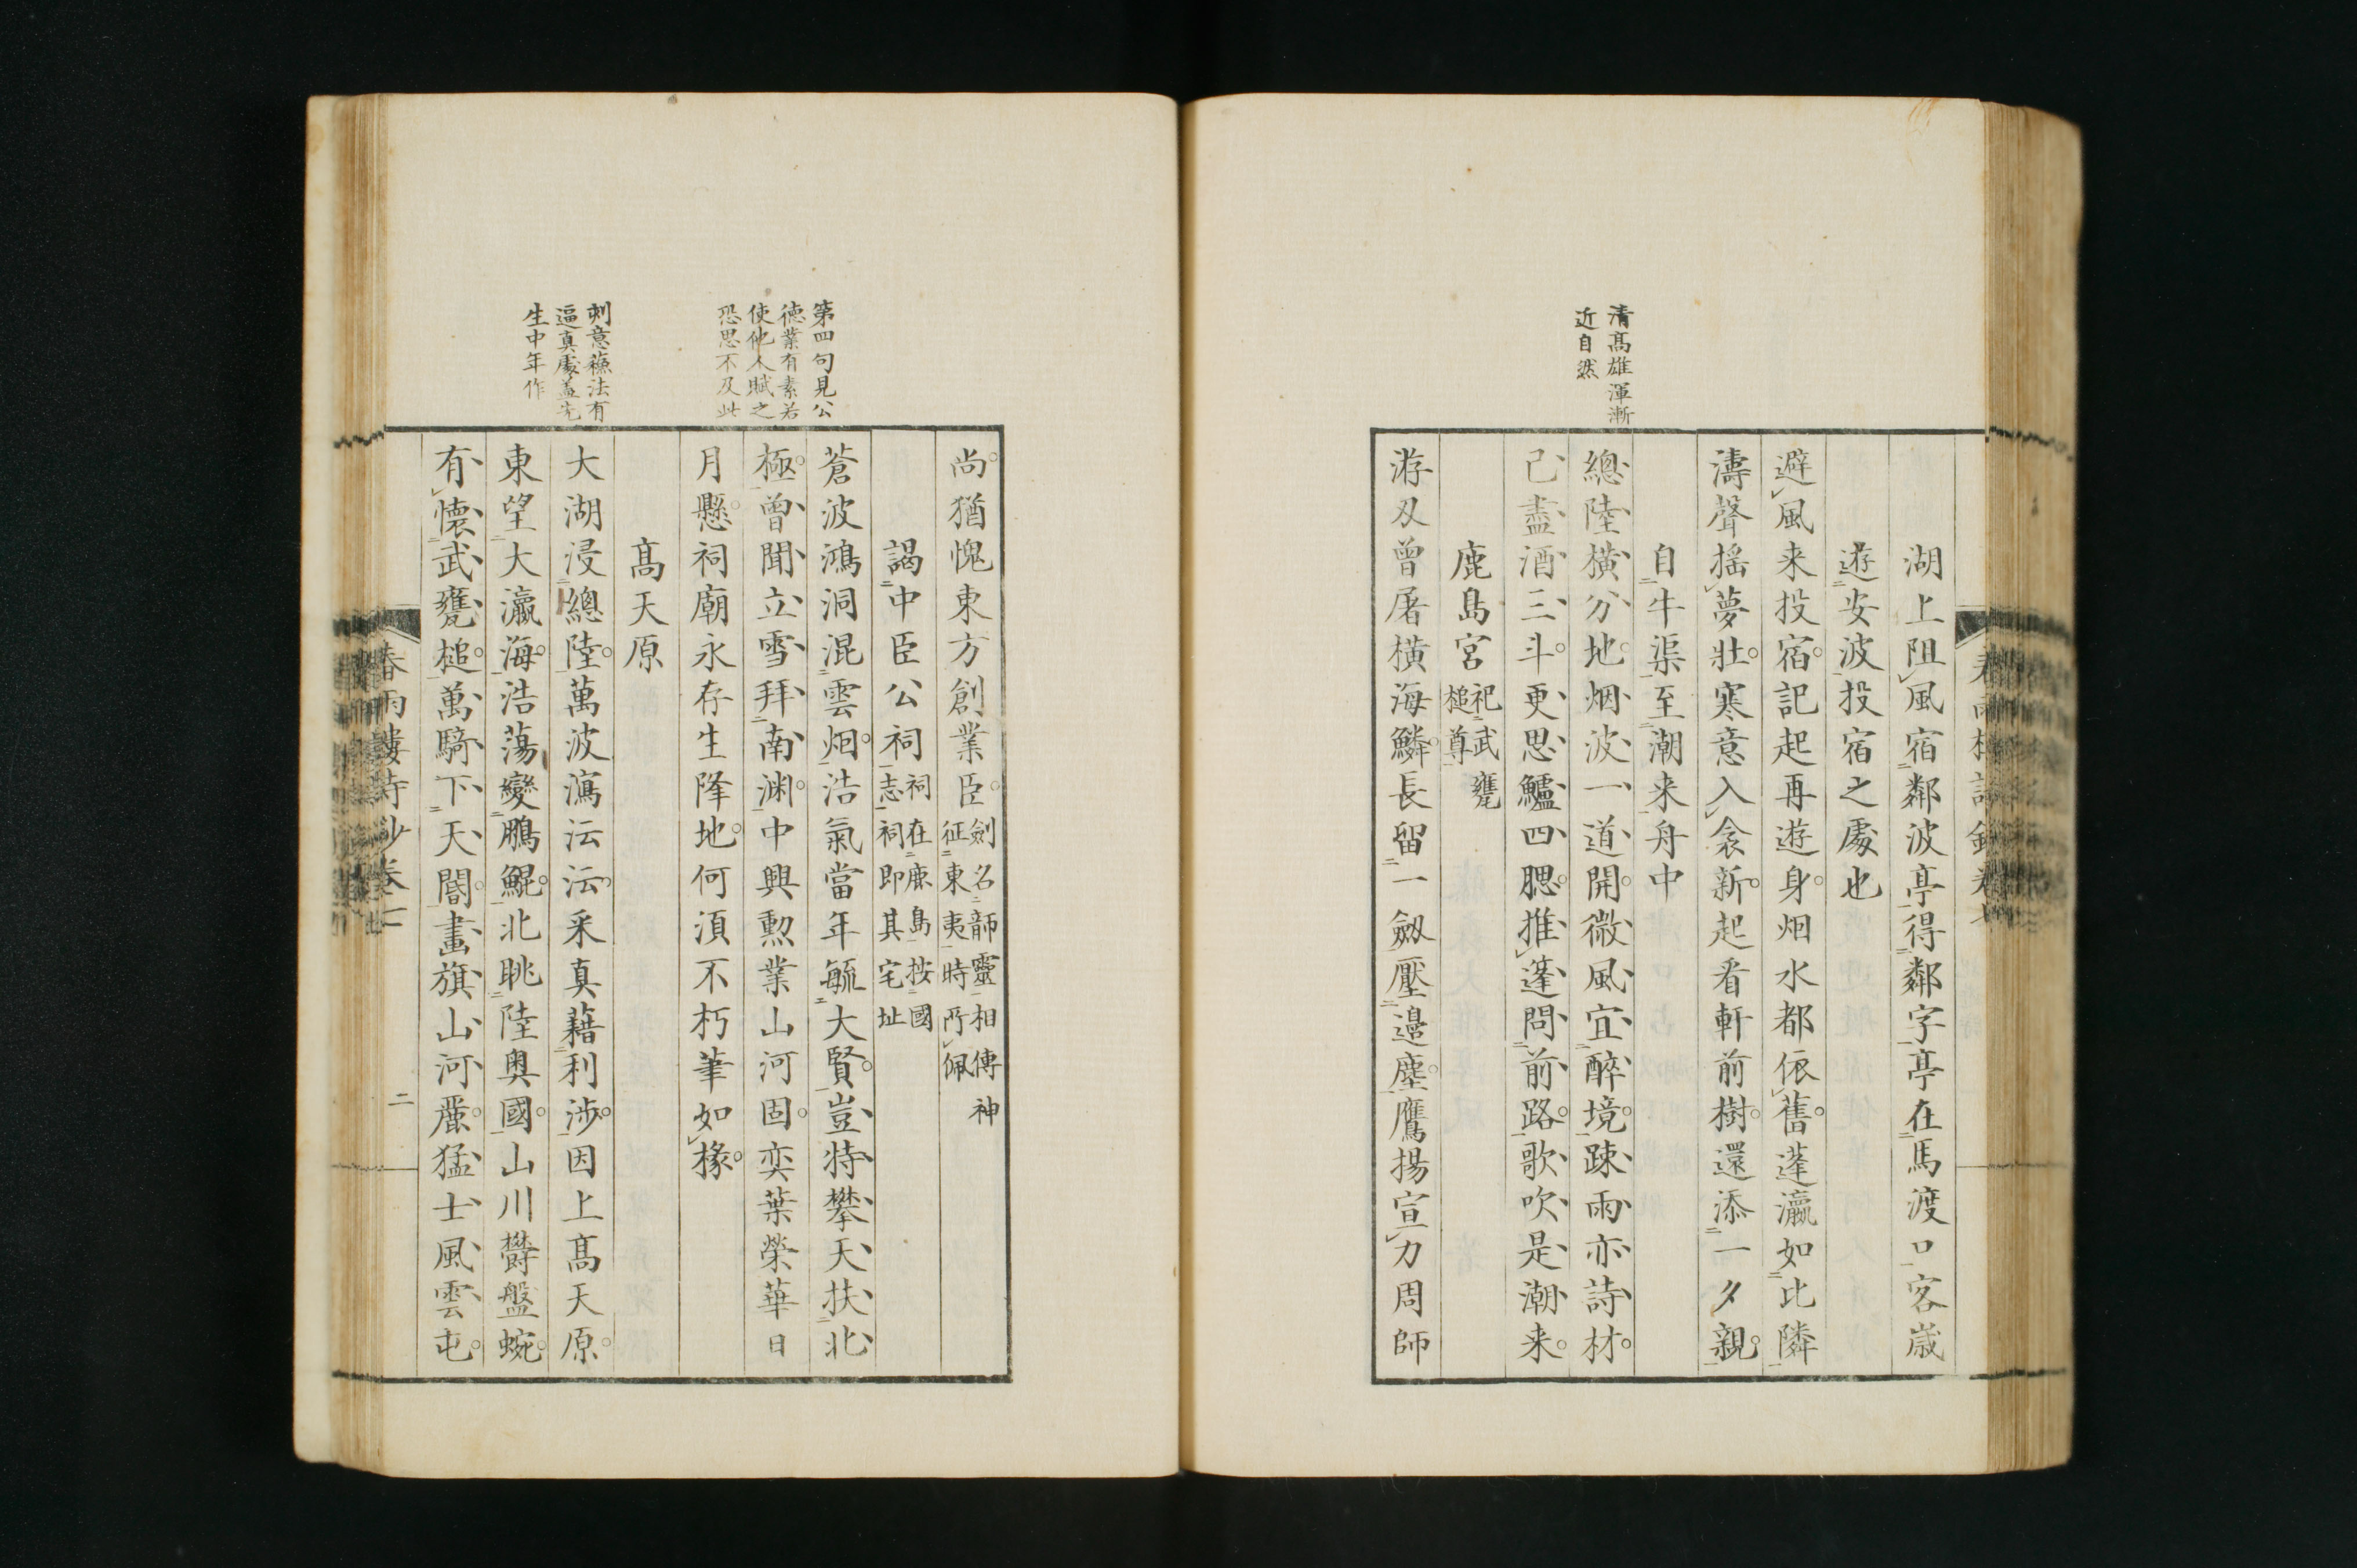 湖上阻風宿鄰波亭得鄰字亭在馬渡口客歳
遊安波投宿之處也
避風来投宿記起再遊身烟水都依舊蓬瀛如比隣
濤聲揺夢壮寒意入衾新起看軒前樹還添一夕親
自牛渠至潮来舟中
清高雄渾漸
近自然
總陸横分地烟波一道開微風宜醉境疎雨亦詩材
己盡酒三斗更思鱸四腮推蓬問前路歌吹是潮来
鹿島宮祀武甕
槌尊
游刄曾屠横海鱗長留一劔壓邉塵鷹揚宣力周師
尚猶愧東方創業臣劍名韴靈相傳神
征東夷時所佩
謁中臣公祠祠在鹿島按國
志祠即其宅址
第四句見公
徳業有素若
使他人賦之
恐思不及此
蒼波鴻洞混雲烟浩氣當年毓大賢豈特攀天扶北
極曾聞立雪拜南渊中興勲業山河固奕葉榮華日
月懸祠廟永存生降地何湏不朽筆如椽
高天原
刺意蘓法有
逼真處蓋先
生中年作
大湖浸總陸萬波瀉沄沄釆真藉利渉因上高天原
東望大瀛海浩蕩變鵬鯤北眺陸奥國山川欝盤蜿
有懐武甕槌萬騎下天閽畫旗山河麗猛士風雲屯
春雨樓詩鈔卷二